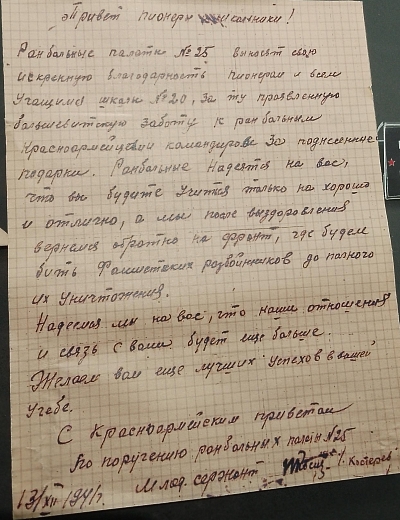 Привет пионеры школьники!
Ранбальные палаты №25 выносят свою
искренную благодарность пионерам и всем
Учащимся школы №20, За ту проявленную
большевитскую заботу к ранбальным
Красноармейцам командирове За поднесенные
подарки. Ранбальные Надеятся на вас,
что вы будите Учится только на хорошо
и отлично, а мы после выздоровления
вернемся обратно на фронт, где будем
бить Фашистских розбойников до полного
их Уничтожения.
Надеемся мы на вас, что наши отношения
и связь с вами будет еще больше.
Желаем вам еще лучших успехов в вашей
Учебе.
С Красноармейским приветом
По поручению ранбальных палаты №25
Млад. сержант Костерев
13/XII 1941г.